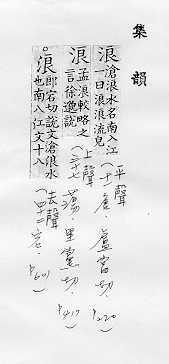 集韻
浪滄浪水名南江
一曰浪浪流皃
(平聲
十一唐,盧當切.
p220)
浪孟浪較略之
言徐邈說
(上聲
三十七蕩.里黨切.
p417)
浪即宕切說文滄浪水
也南入江文十八
(去聲
四十二宕.
p601)